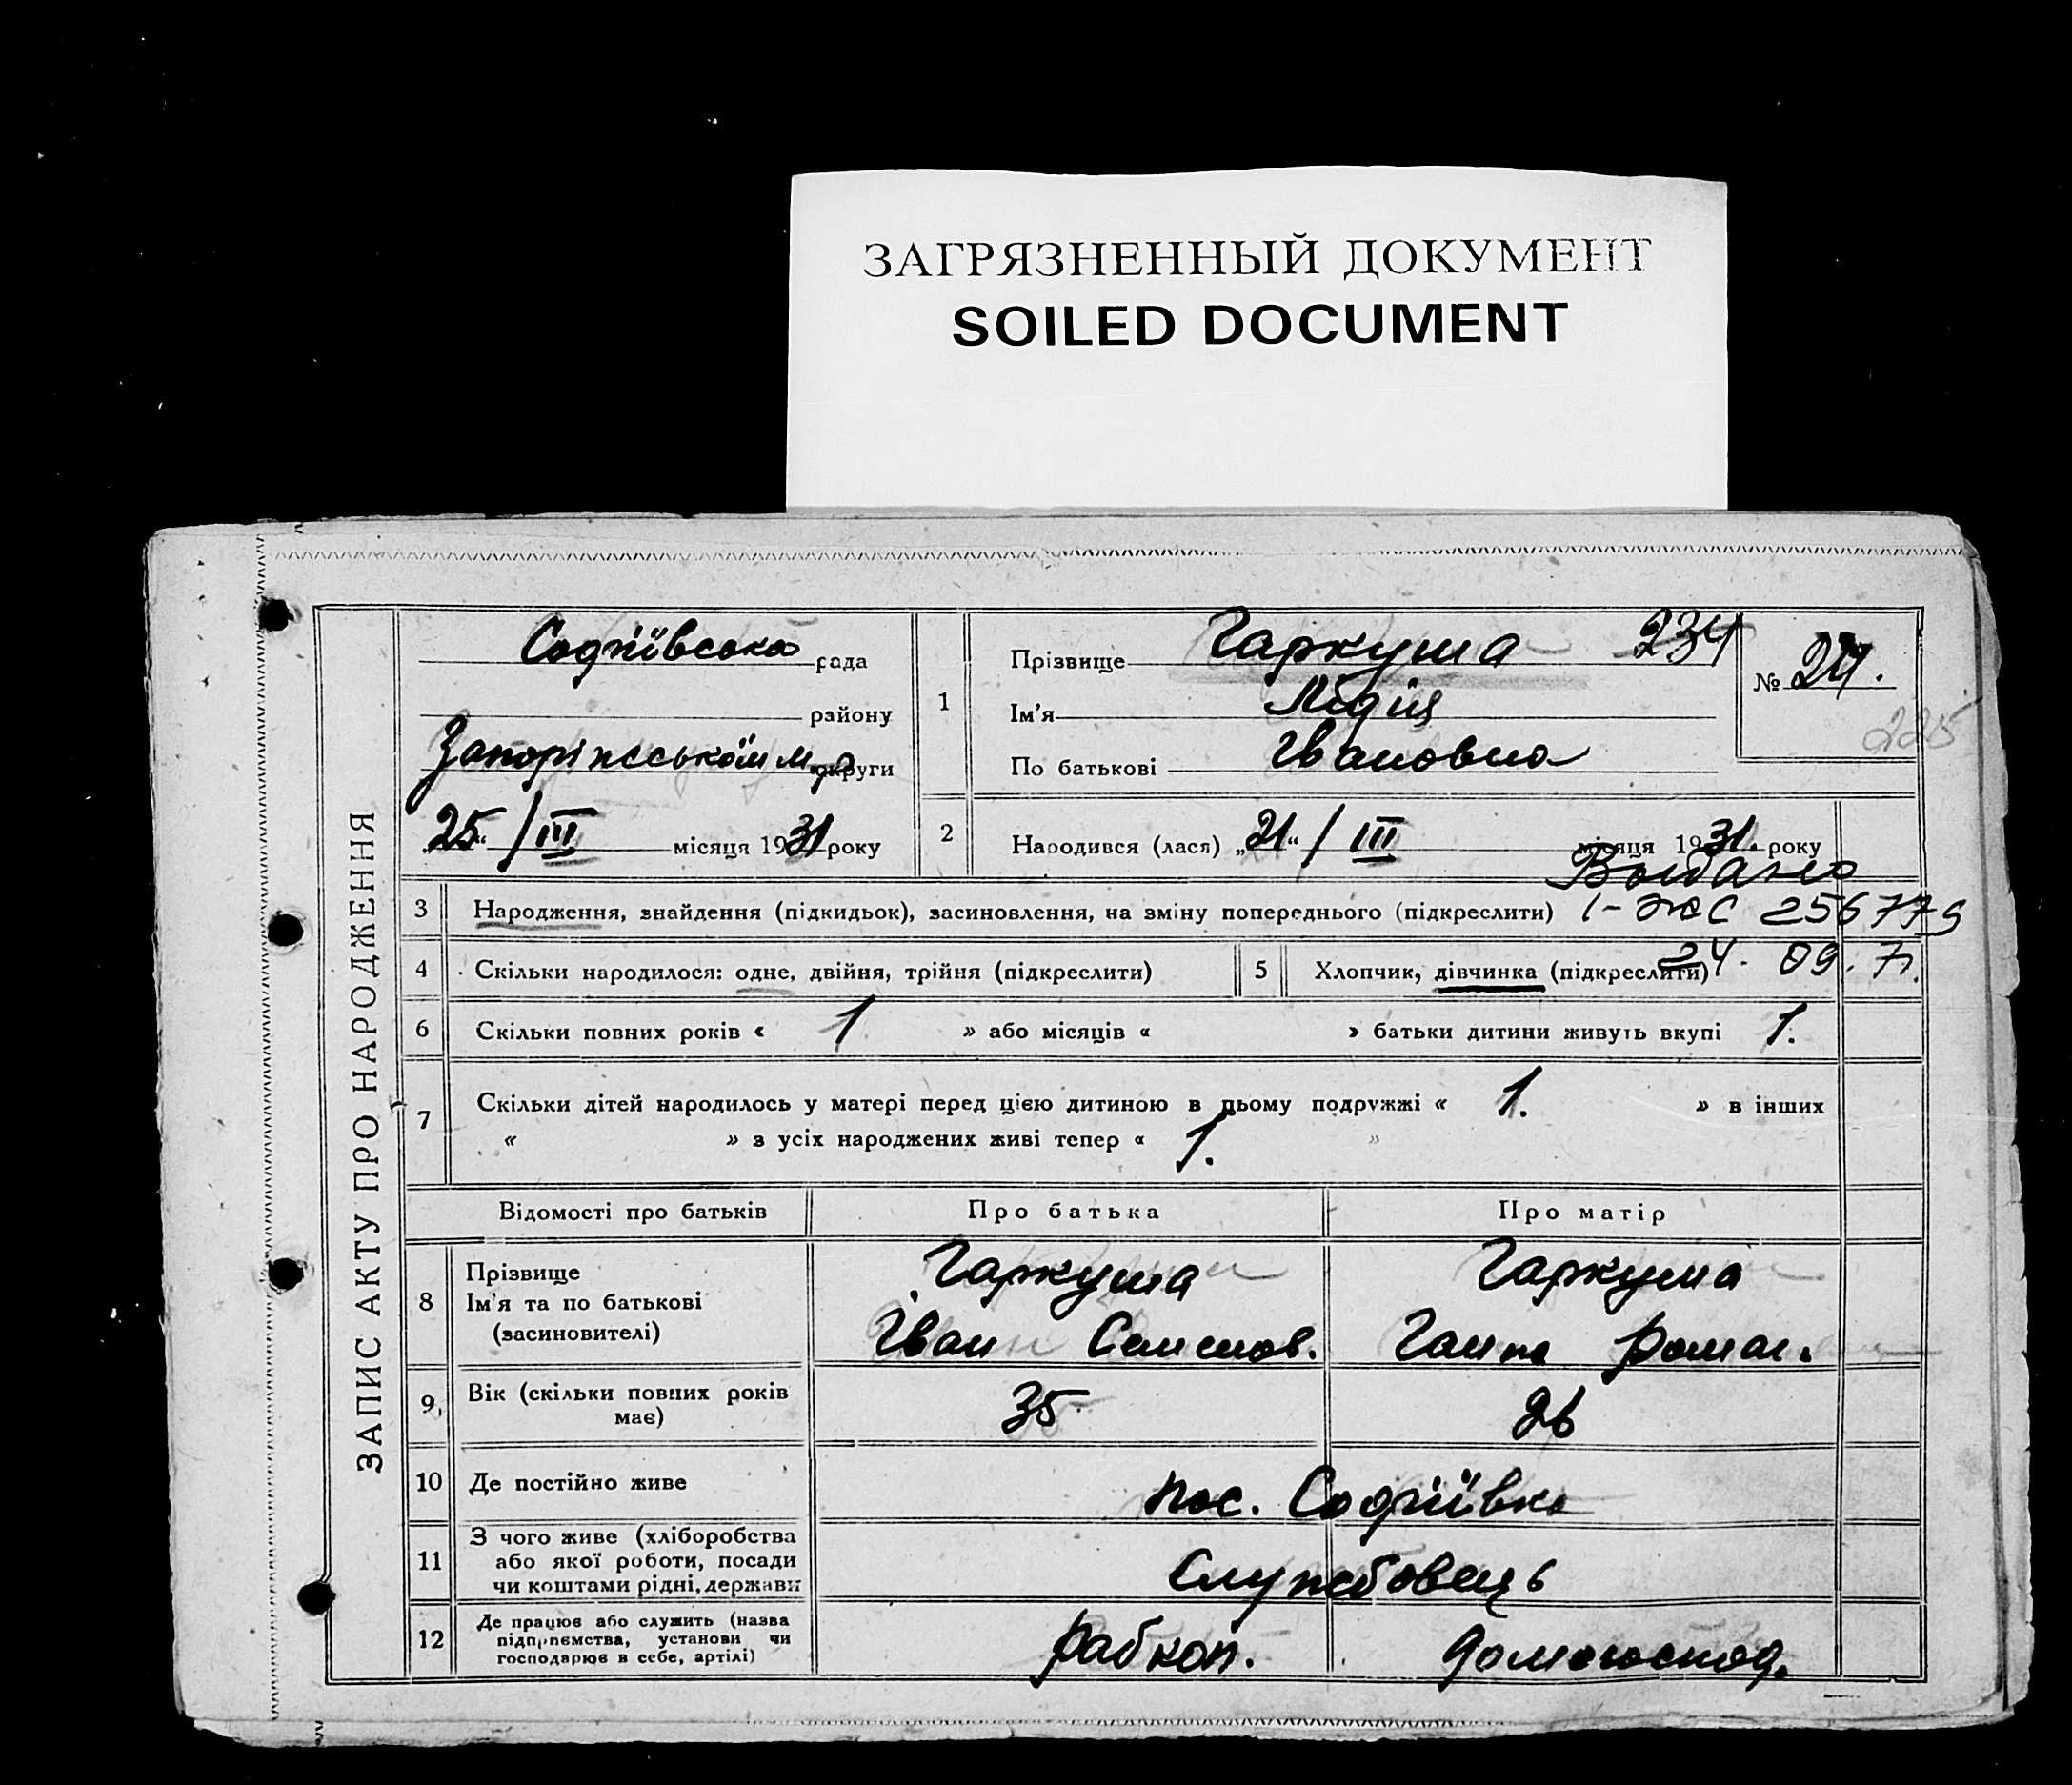 ЗАГРЯЗНЕННЫЙ ДОКУМЕНТ
SOILED DOCUMENT
ЗАПИС АКТУ ПРО НАРОДЖЕННЯ
Софіївська рада
району
округи
25 / III місяця 1931 року
1
Прізвище Гаркуша 234
Ім'я Лідія
По батькові Івановна
№ 24.
225
2 Народився (лася) „21“ / III місяця 1931. року
Выдано
3 Народження, знайдення (підкидьок), засиновлення, на зміну попереднього (підкреслити) I-ЖС 256779
4 Скільки народилося: одне, двійня, трійня (підкреслити) 5 Хлопчик, дівчинка (підкреслити) 24. 09. 71.
6 Скільки повних років « 1 » або місяців « » батьки дитини живуть вкупі 1.
7 Скільки дітей народилось у матері перед цією дитиною в цьому подружжі « 1. » в інших
« » з усіх народжених живі тепер « 1. »
Відомості про батьків Про батька Про матір
8 Прізвище Гаркуша Гаркуша
Ім'я та по батькові
(засиновителі) Іван Семенов. Ганна Роман.
9 Вік (скільки повних років має) 35 26
10 Де постійно живе пос. Софіївка
11 З чого живе (хліборобства
або якої роботи, посади
чи коштами рідні, держави Службовець
12 Де працює або служить (назва
підприємства, установи чи
господарює в себе, артілі) Рабкоп. домогоспод.